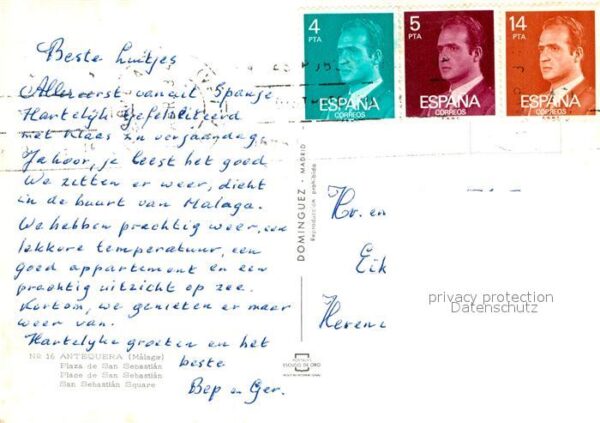 4 PTA
ESPAÑA
CORREOS
5 PTA
ESPAÑA
CORREOS
14 PTA
ESPAÑA
CORREOS
Beste luitjes
Allereerst vanuit Spanje
Hartelijk gefeliciteerd
met Klaas z'n verjaardag.
Ja hoor, je leest het goed
We zitten er weer, dicht
in de buurt van Malaga.
We hebben prachtig weer, een
lekkere temperatuur, een
goed appartement en een
prachtig uitzicht op zee.
Kortom, we genieten er maar
weer van.
Hartelijke groeten en het
beste
Bep en Ger.
Nº 16 ANTEQUERA (Málaga)
Plaza de San Sebastián
Place de San Sebastián
San Sebastián Square
DOMINGUEZ - MADRID
Reproducción prohibida
ESCUDO DE ORO
Hr. en
Eik
Heren
privacy protection
Datenschutz